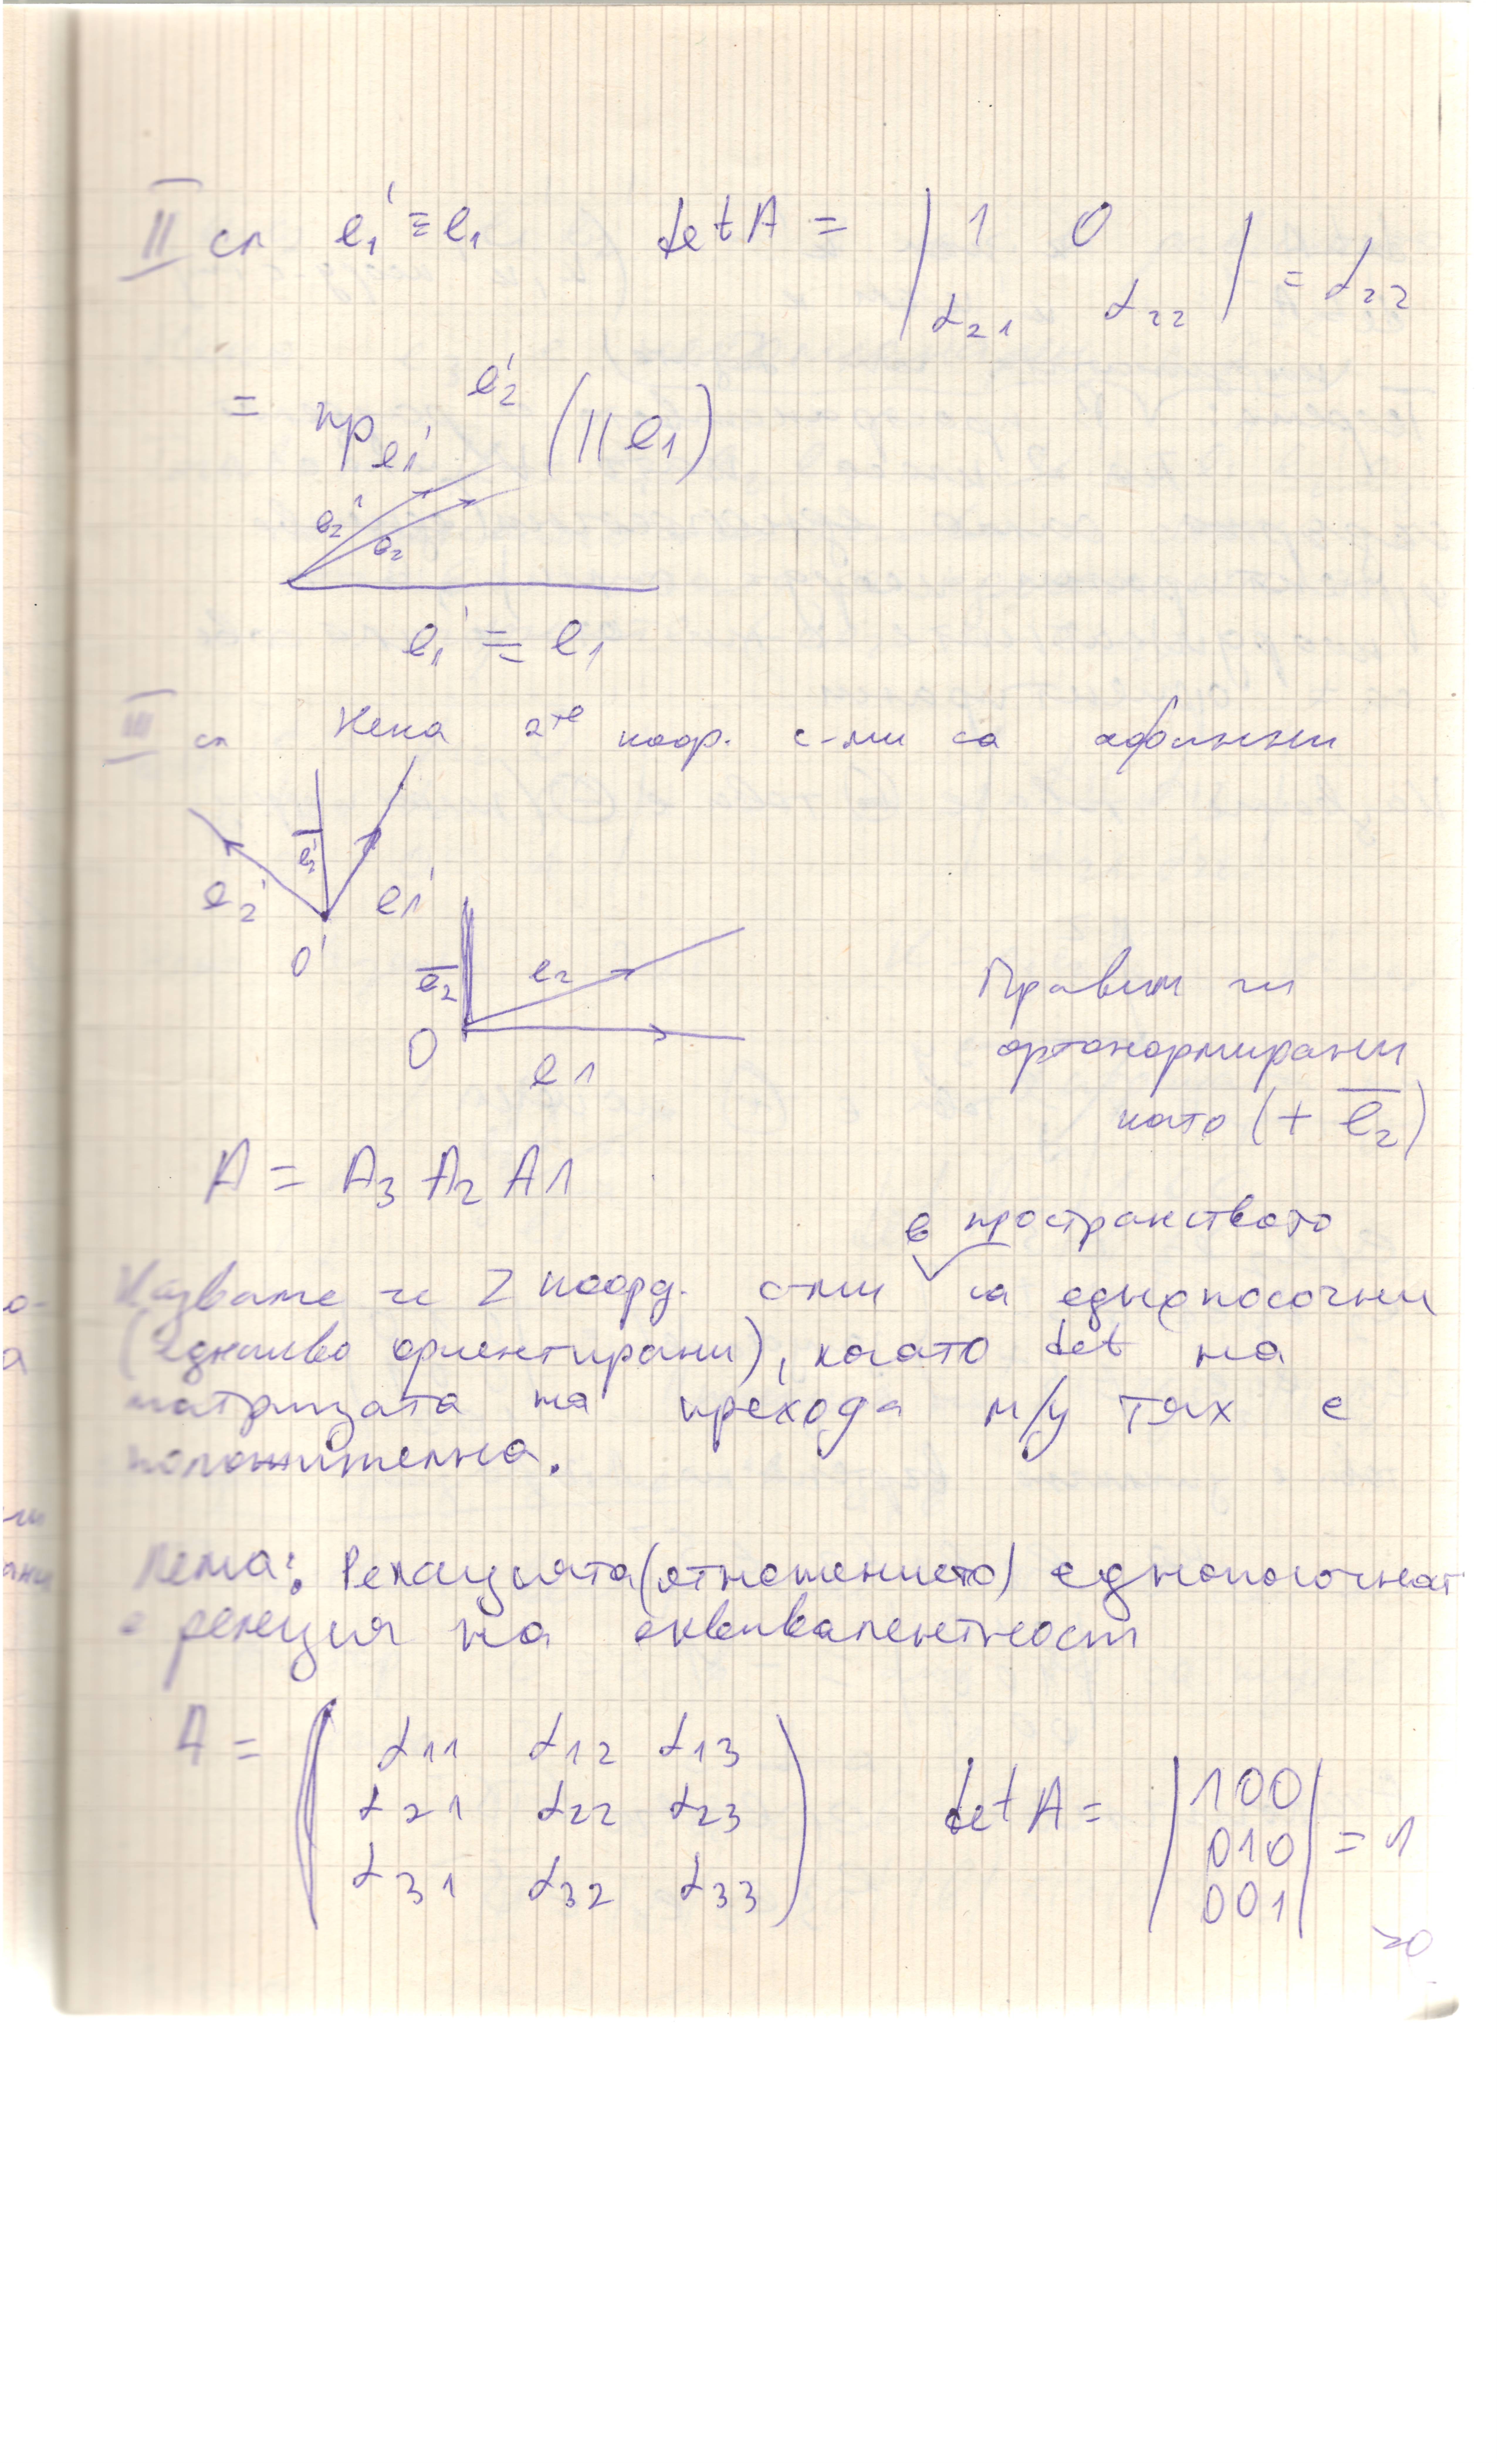 II сл e₁' ≡ e₁ det A = | 1 0 |
| α₂₁ α₂₂ | = α₂₂
= пр e₁' e₂' (|| e₁)
e₂' e₂
e₁' ≡ e₁
III сл Нека 2те коор. с-ми са афинни
e₂' e₂' e₁'
O'
e₂ e₂
O e₁
Правим ги
ортонормирани
като (+ e̅₂)
A = A₃ A₂ A1
в пространството
Казваме че 2 коорд. с-ми са еднопосочни
(еднакво ориентирани), когато det на
матрицата на прехода м/у тях е
положителна.
Лема: Релацията (отношението) еднопосочност
е релация на еквивалентност
A = ( α₁₁ α₁₂ α₁₃
α₂₁ α₂₂ α₂₃
α₃₁ α₃₂ α₃₃ )
det A = | 1 0 0 |
| 0 1 0 | = 1
| 0 0 1 |
>0